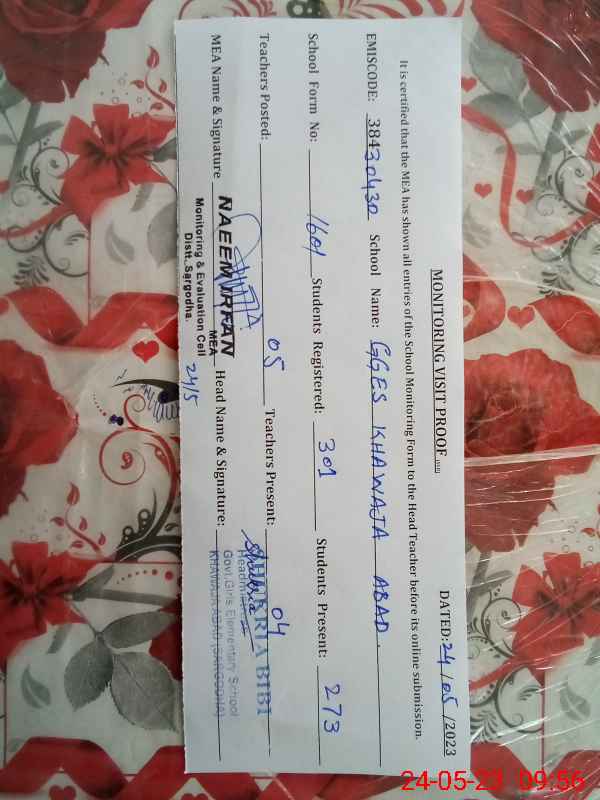 MONITORING VISIT PROOF DATED: 24/05/2023
It is certified that the MEA has shown all entries of the School Monitoring Form to the Head Teacher before its online submission.
EMISCODE: 38430430 School Name: GGES KHAWAJA ABAD.
School Form No: 1601 Students Registered: 301 Students Present: 273
Teachers Posted: 05 Teachers Present: 04
MEA Name & Signature Head Name & Signature:
NAEEM IRFAN
MEA
Monitoring & Evaluation Cell
Distt. Sargodha.
24/5
BIBI
Headmistress
Govt.Girls Elementary School
KHAWAJA ABAD (SARGODHA)
24-05-23 09:56